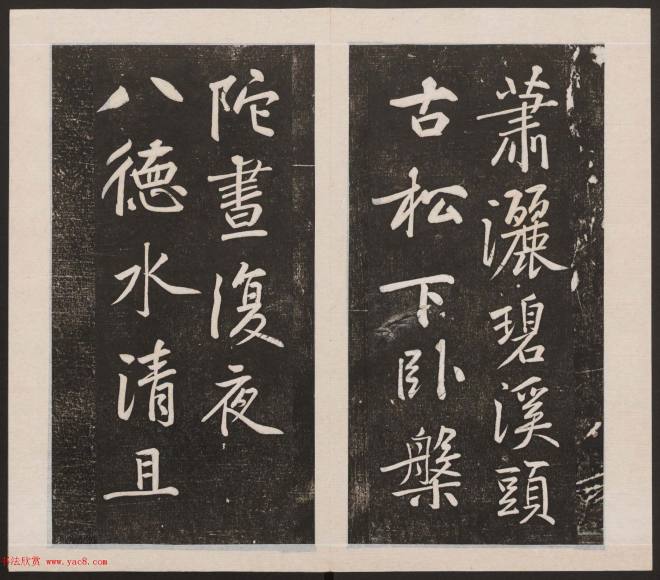 蕭灑碧溪頭
古松下卧槃
陀晝復夜
八德水清且
书法欣赏 www.yac8.com